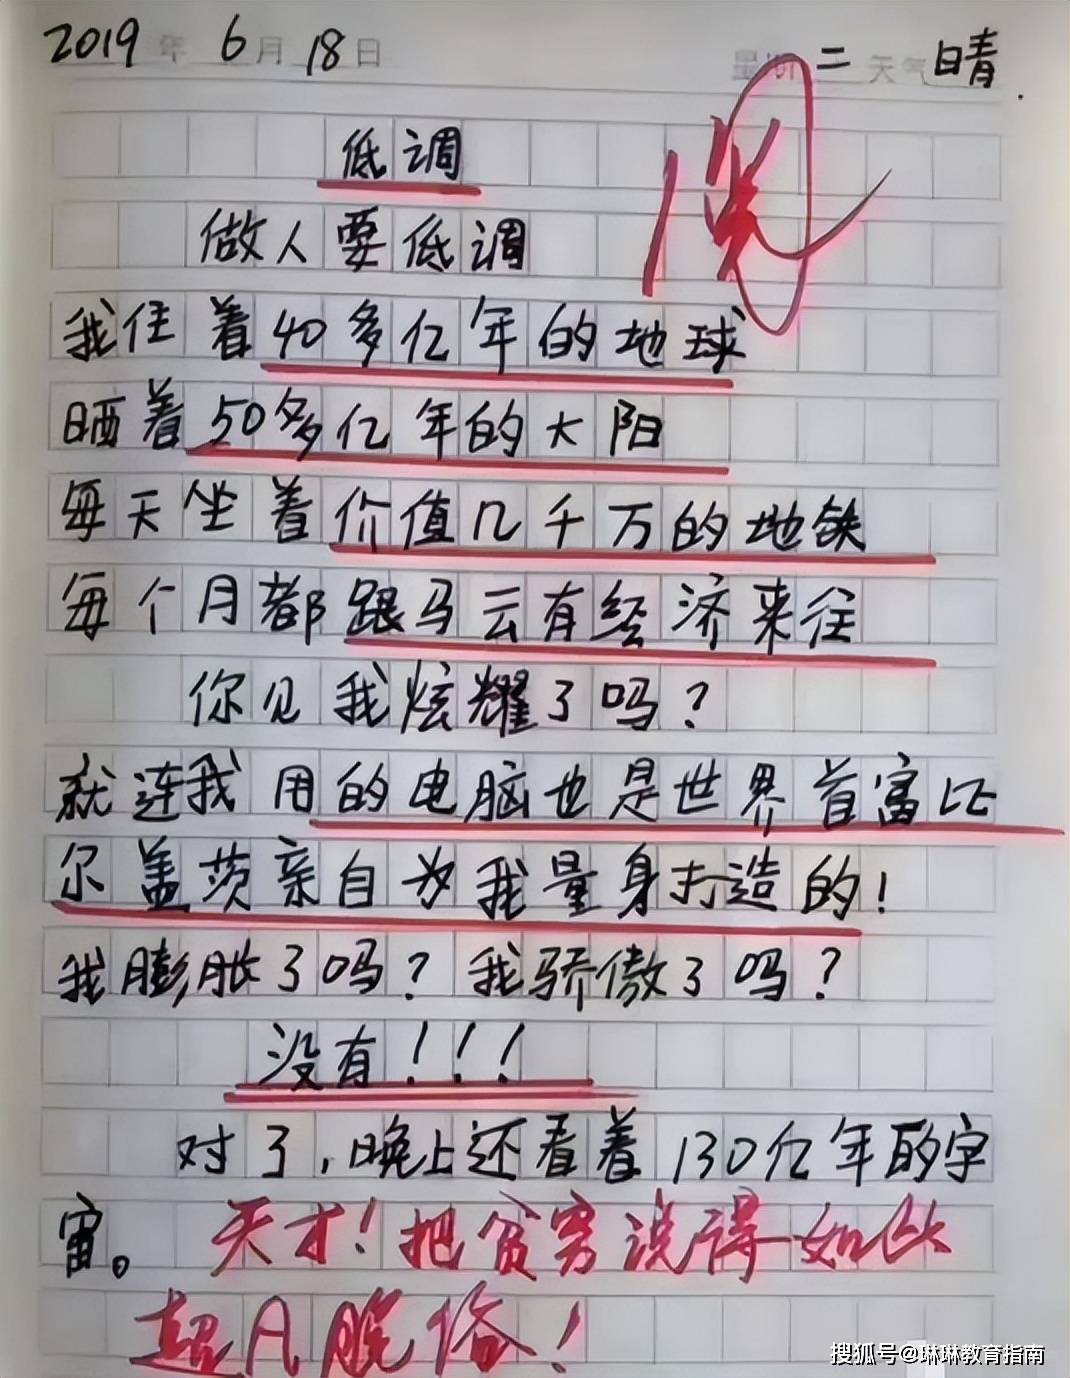 2019年6月18日 星期二 天气 晴
低调
做人要低调
我住着40多亿年的地球
晒着50多亿年的大阳
每天坐着价值几千万的地铁
每个月都跟马云有经济来往
你见我炫耀了吗?
就连我用的电脑也是世界首富比
尔盖茨亲自为我量身打造的!
我膨胀了吗?我骄傲了吗?
没有!!!
对了,晚上还看着130亿年的宇
宙。天才!把贫穷说得如此
超凡脱俗!
搜狐号@琳琳教育指南